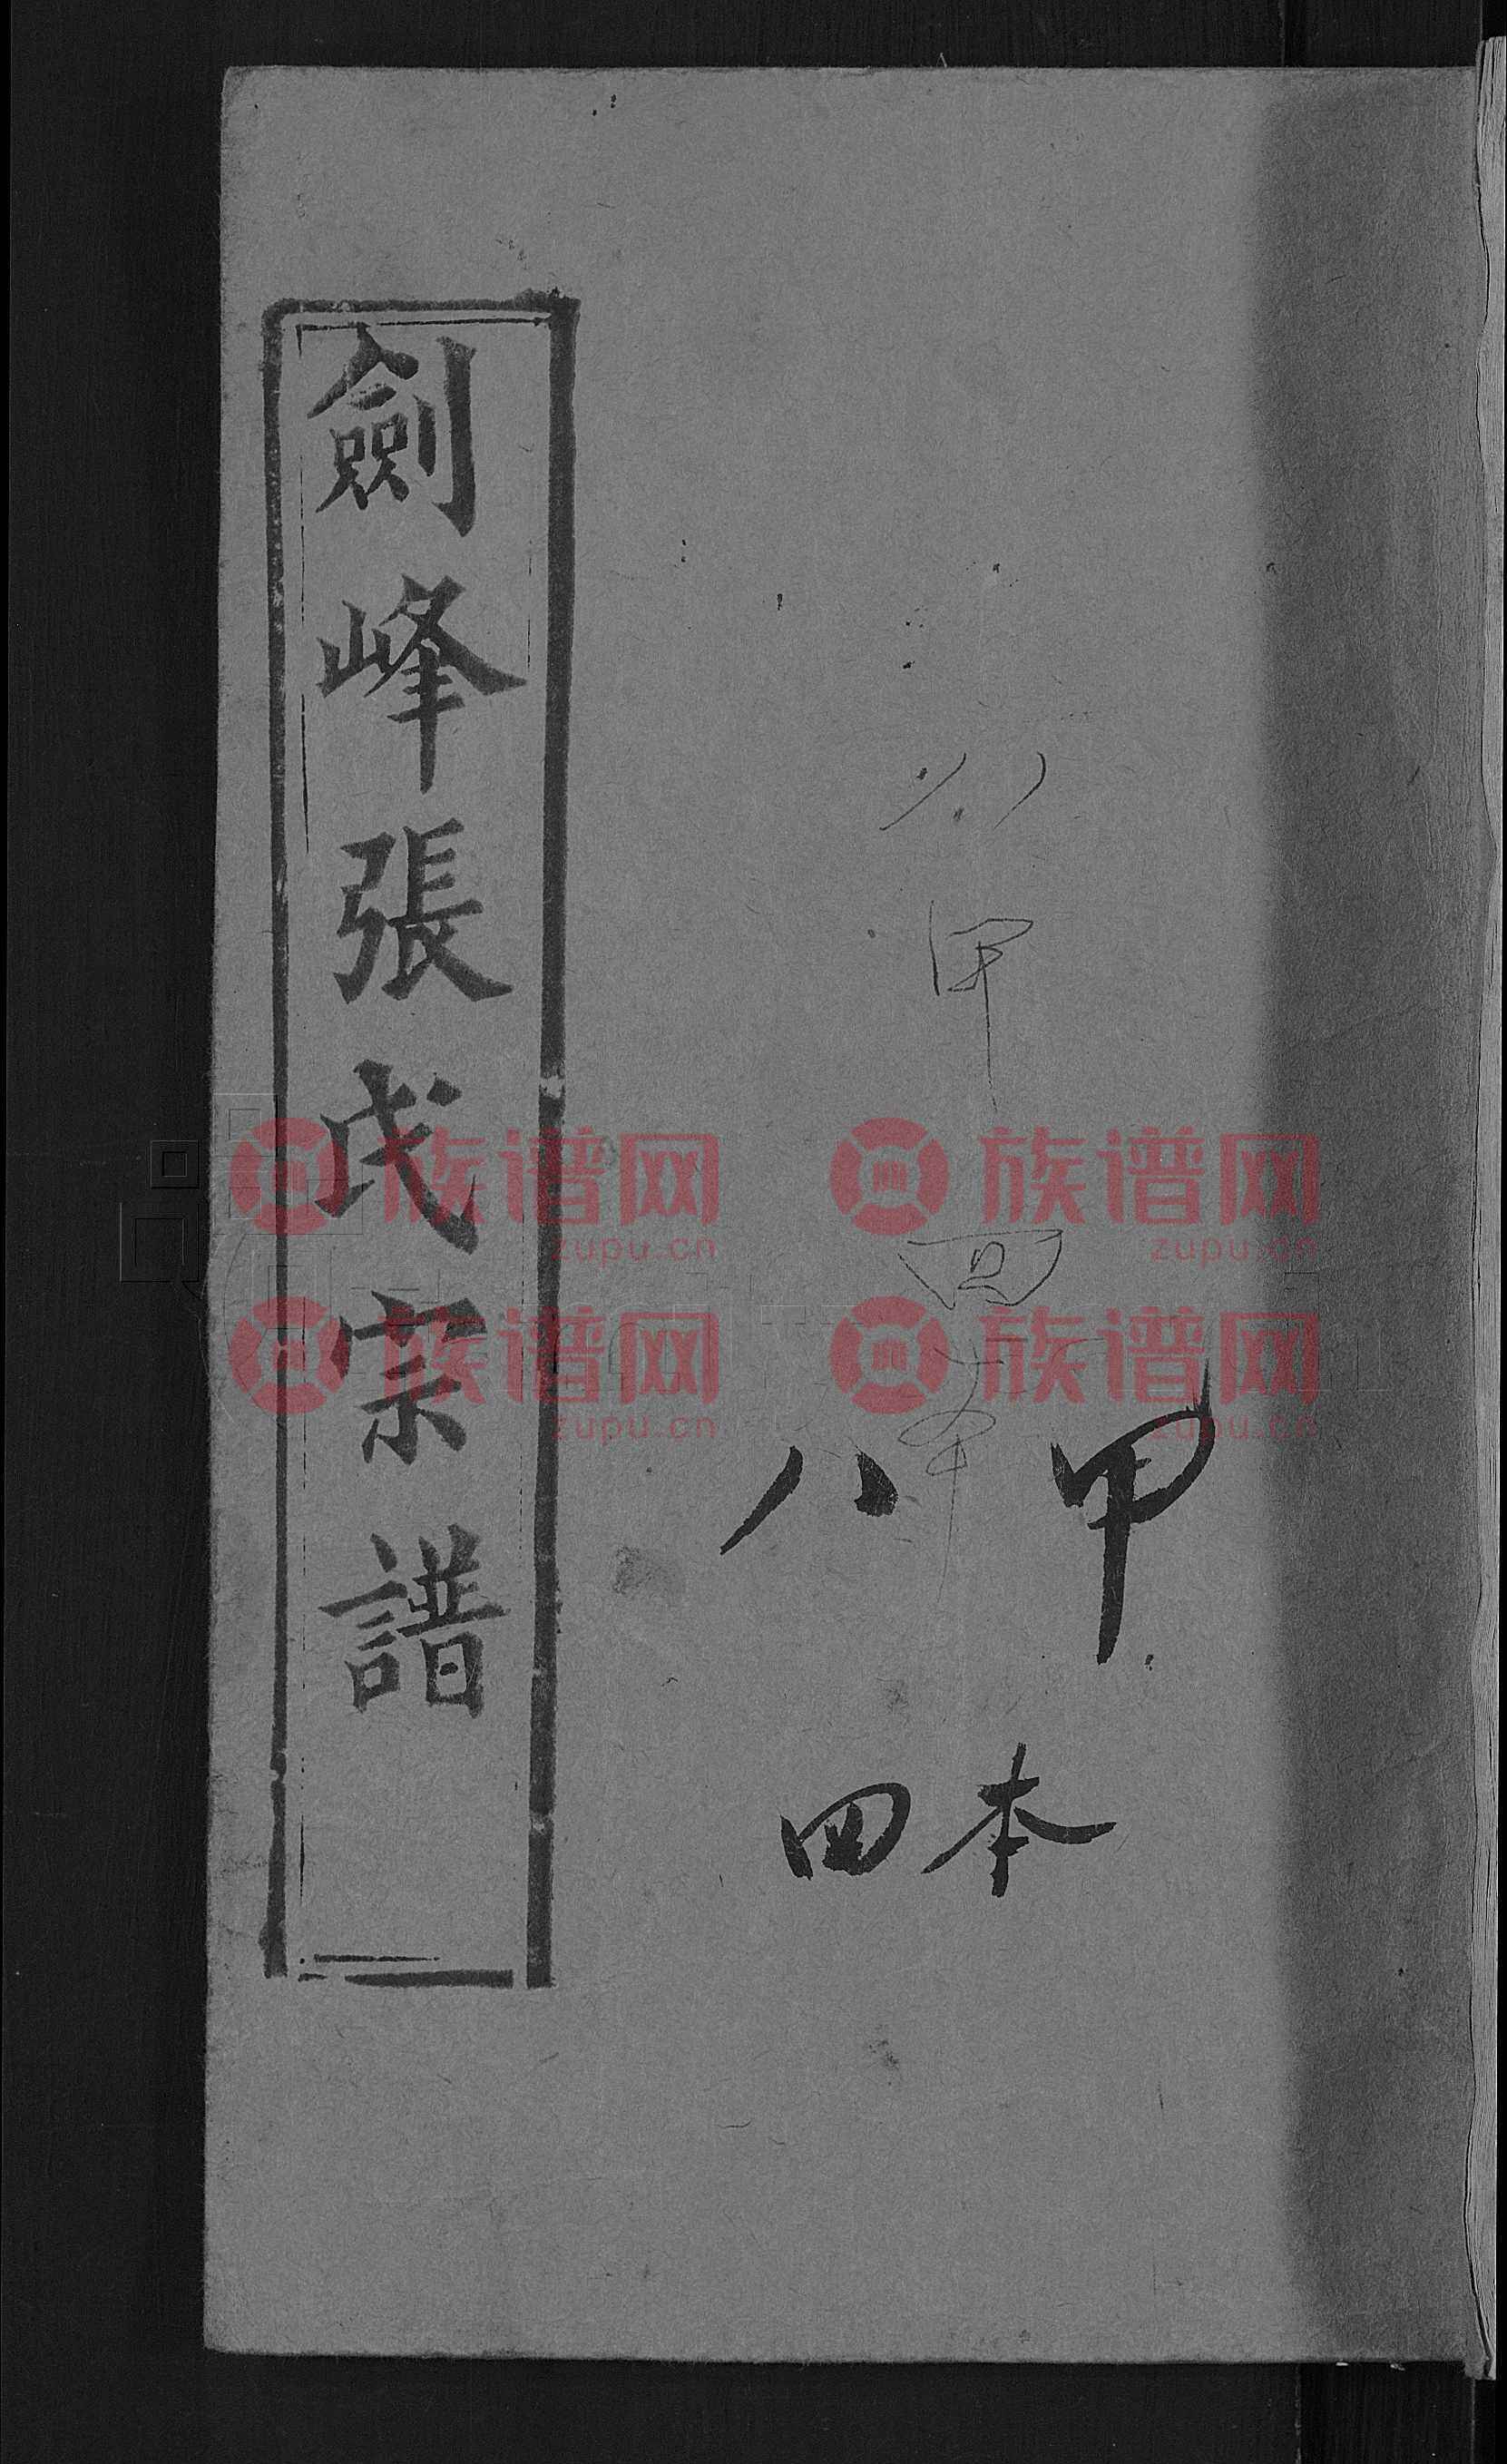 劍峰張氏宗譜
八甲四本
甲
八
本
四
族谱网 族谱网
zupu.cn zupu.cn
族谱网 族谱网
zupu.cn zupu.cn